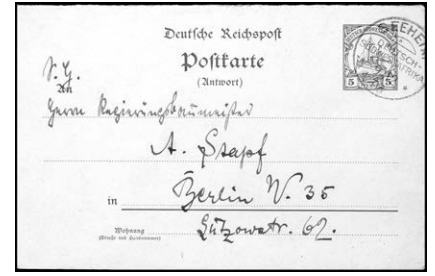 Deutsche Reichspost
Postkarte
(Antwort)
S. H.
An
Herrn Regierungsbaumeister
A. Stapf
in Berlin W. 35
Wohnung
(Straße und Hausnummer)
Lützowstr. 62.
5 5
SEEHEIM
DEUTSCH-
SÜDWESTAFRIKA